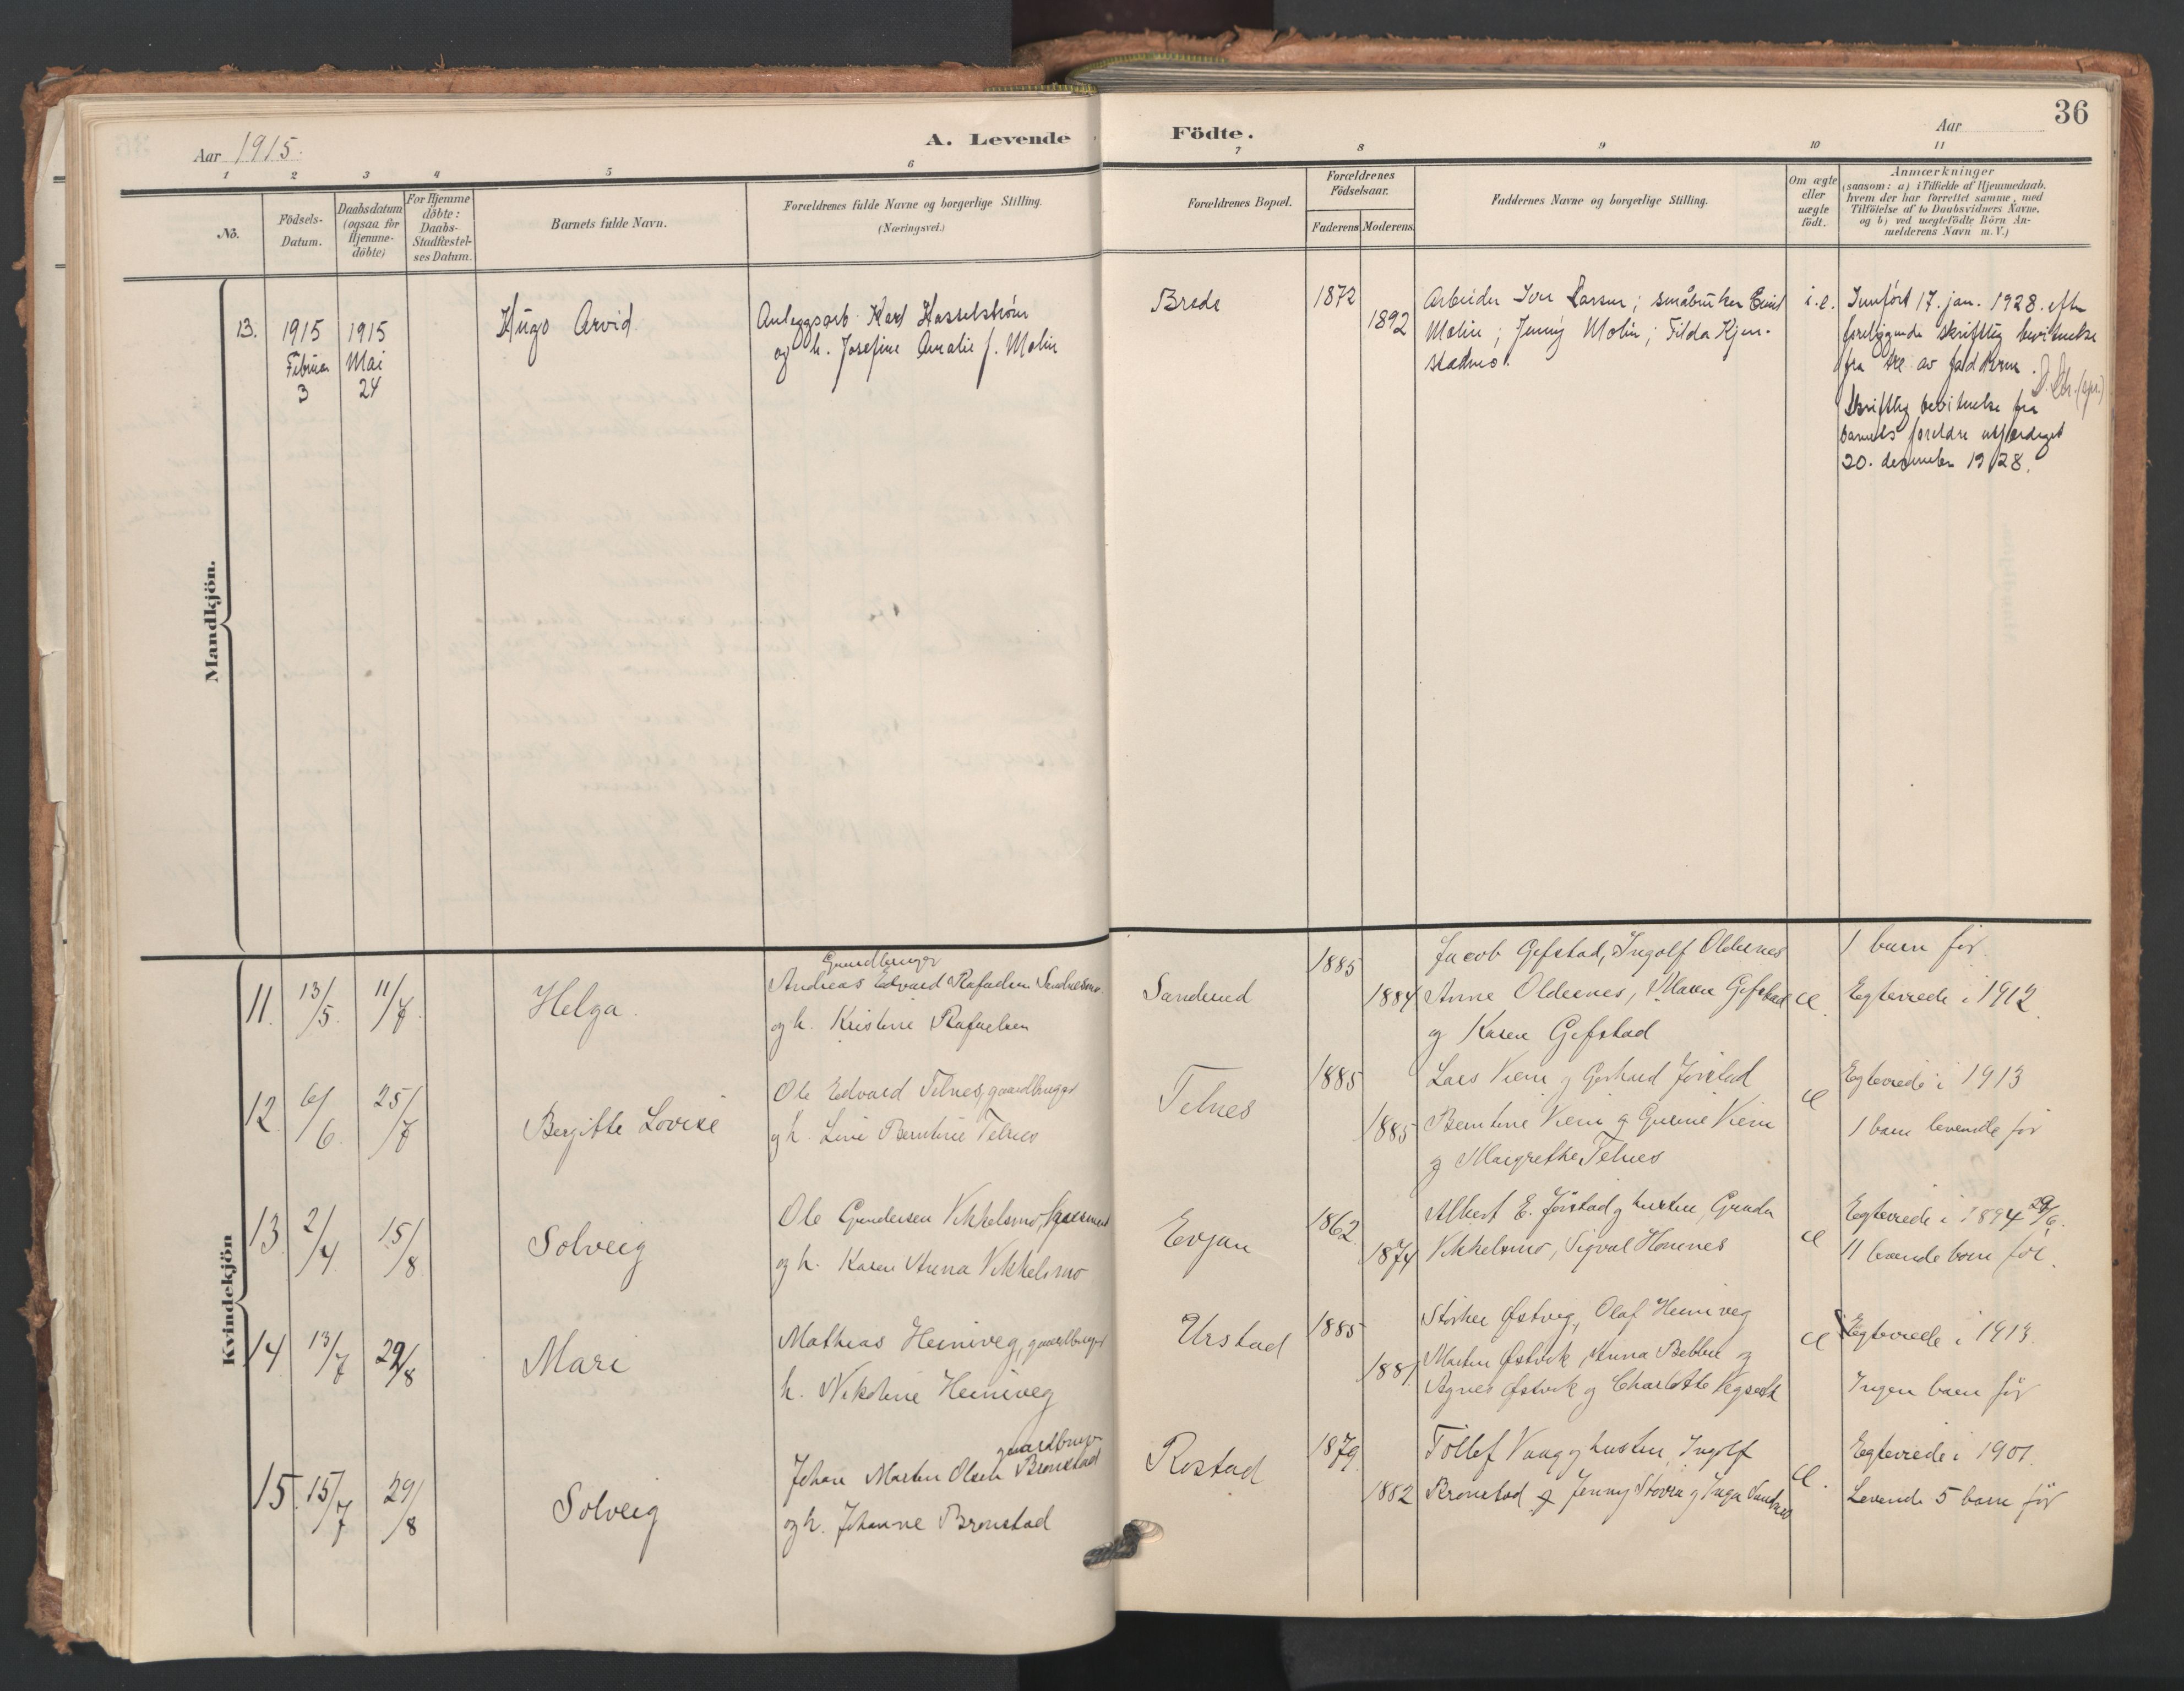 36
Aar 1915.
A. Levende Födte.
Aar
1 2 3 4 5 6 7 8 9 10 11
No.
Födsels-Datum.
Daabsdatum (ogsaa for Hjemme-döbte)
For Hjemme döbte: Daabs-Stadfæstel-ses Datum.
Barnets fulde Navn.
Forældrenes fulde Navne og borgerlige Stilling.
(Næringsvei.)
Forældrenes Bopæl.
Forældrenes Födselsaar.
Faderens Moderens
Faddernes Navne og borgerlige Stilling.
Om ægte eller uægte födt.
Anmærkninger
(saasom: a) i Tilfælde af Hjemmedaab,
hvem der har forrettet samme, med
Tilföielse af to Daabsvidners Navne,
og b) ved uegtefödte Börn An-
melderens Navn m. V.)
Mandkjön.
13.
1915 Februar 3
1915 Mai 24
Hugo Arvid
Anleggsarb. Karl Hasselstrøm
og h. Josefine Amalie f. Molin
Brede
1872
1892
Arbeider Iver Larsen; småbruker Emil
Molin; Jenny Molin; Tilda Kjen-
stadmo.
i.e.
Innført 17. jan. 1928 efter
foreliggende skriftlig bevitnelse
fra tre av fadderne.
Skriftlig bevitnelse fra
barnets foreldre utferdiget
20. desember 1928.
Kvindekjön
11. 13/5. 11/7.
Helga.
Gaardbruger
Andreas Edvard Rafaelsen Sandnesmo
og h. Kristine Rafaelsen
Sandmed
1885
1884
Jacob Gefstad, Ingolf Oldernes
Anne Oldernes, Maren Gefstad
og Karen Gefstad
e.
1 barn før
Egteviede i 1912.
12 6/6. 25/7
Bergitte Lovise
Ole Edvard Telnes, gaardbruger
og h. Line Berntine Telnes
Telnes
1885
1885
Lars Viem og Gerhard Jørstad
Berntine Viem og Gurine Viem
og Margrethe Telnes
e
Egteviede i 1913
1 barn levende før
13 2/4 15/8
Solveig
Ole Gundersen Vikkelsmo,
og h. Karen Anna Vikkelsmo
Evjan
1862
1874
Albert E. Jørstad og hustru, Gunda
Vikkelsmo, Sigval Homnes
e
Egteviede i 1894 29/6.
11 levende barn før.
14 13/7 29/8
Mari
Mathias Heniveg, gaardbruger
h. Nikoline Heniveg
Urstad
1885
1881
Størker Østvig, Olaf Heniveg
Martin Østvik, Anna Bebbu og
Agnes Østvik og Charlotte
e
Egteviede i 1913.
Ingen barn før
15. 15/7 29/8
Solveig
gaardbruger
Johan Martin Olsen Brønstad
og h. Johanne Brønstad
Rostad
1879
1882
Tollef Vaag og hustru, Ingolf
Brønstad og Jenny Stovra og Inga Sandnes
e.
Egteviede i 1901.
Levende 5 barn før